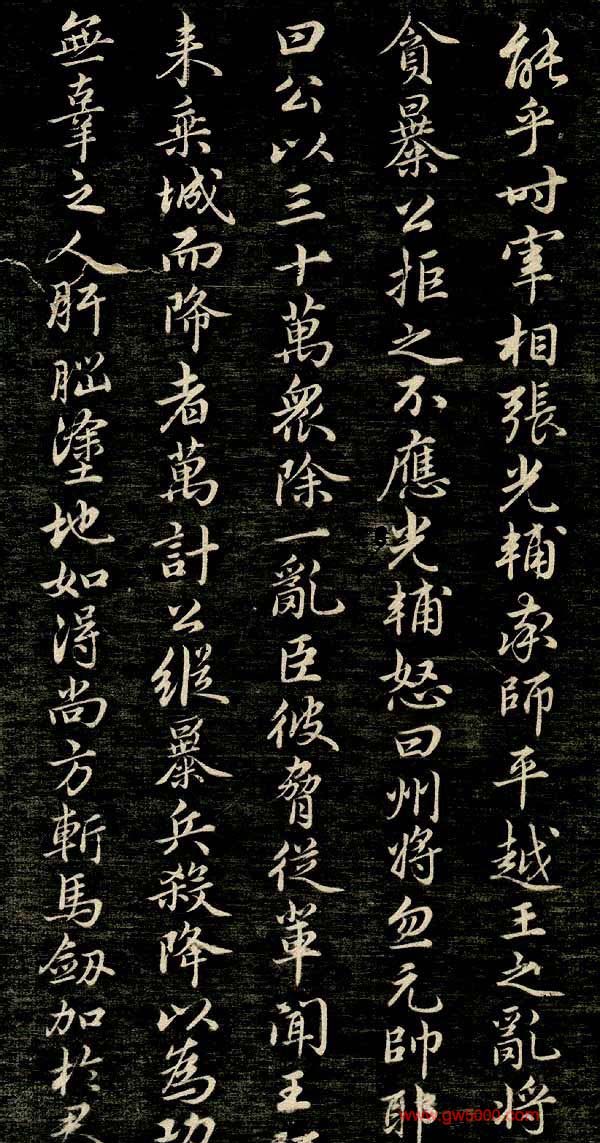 能乎时宰相張光輔率師平越王之亂將
貪暴公拒之不應光輔怒曰州將忽元帥耶
曰公以三十萬衆除一亂臣彼脅從輩聞王
来乘城而降者萬計公縱暴兵殺降以為功
無辜之人肝腦塗地如得尚方斬馬劔加於君
www.gw5000.com